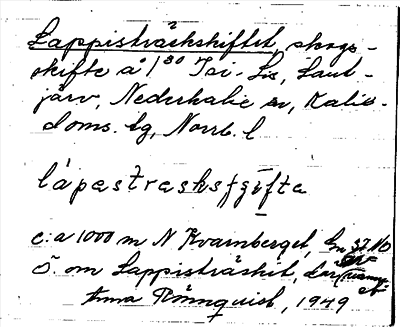 Lappisträskskiftet, skogs-
skifte å 1⁸⁰ Isi-Lis, Laut-
järv, Nederkalix sn, Kalix-
doms. tg, Norrb. l
lápastrasksʃyifta
c:a 1000 m N Kvarnberget,
Ö. om Lappisträsket,
Anna Rönnquist, 1949